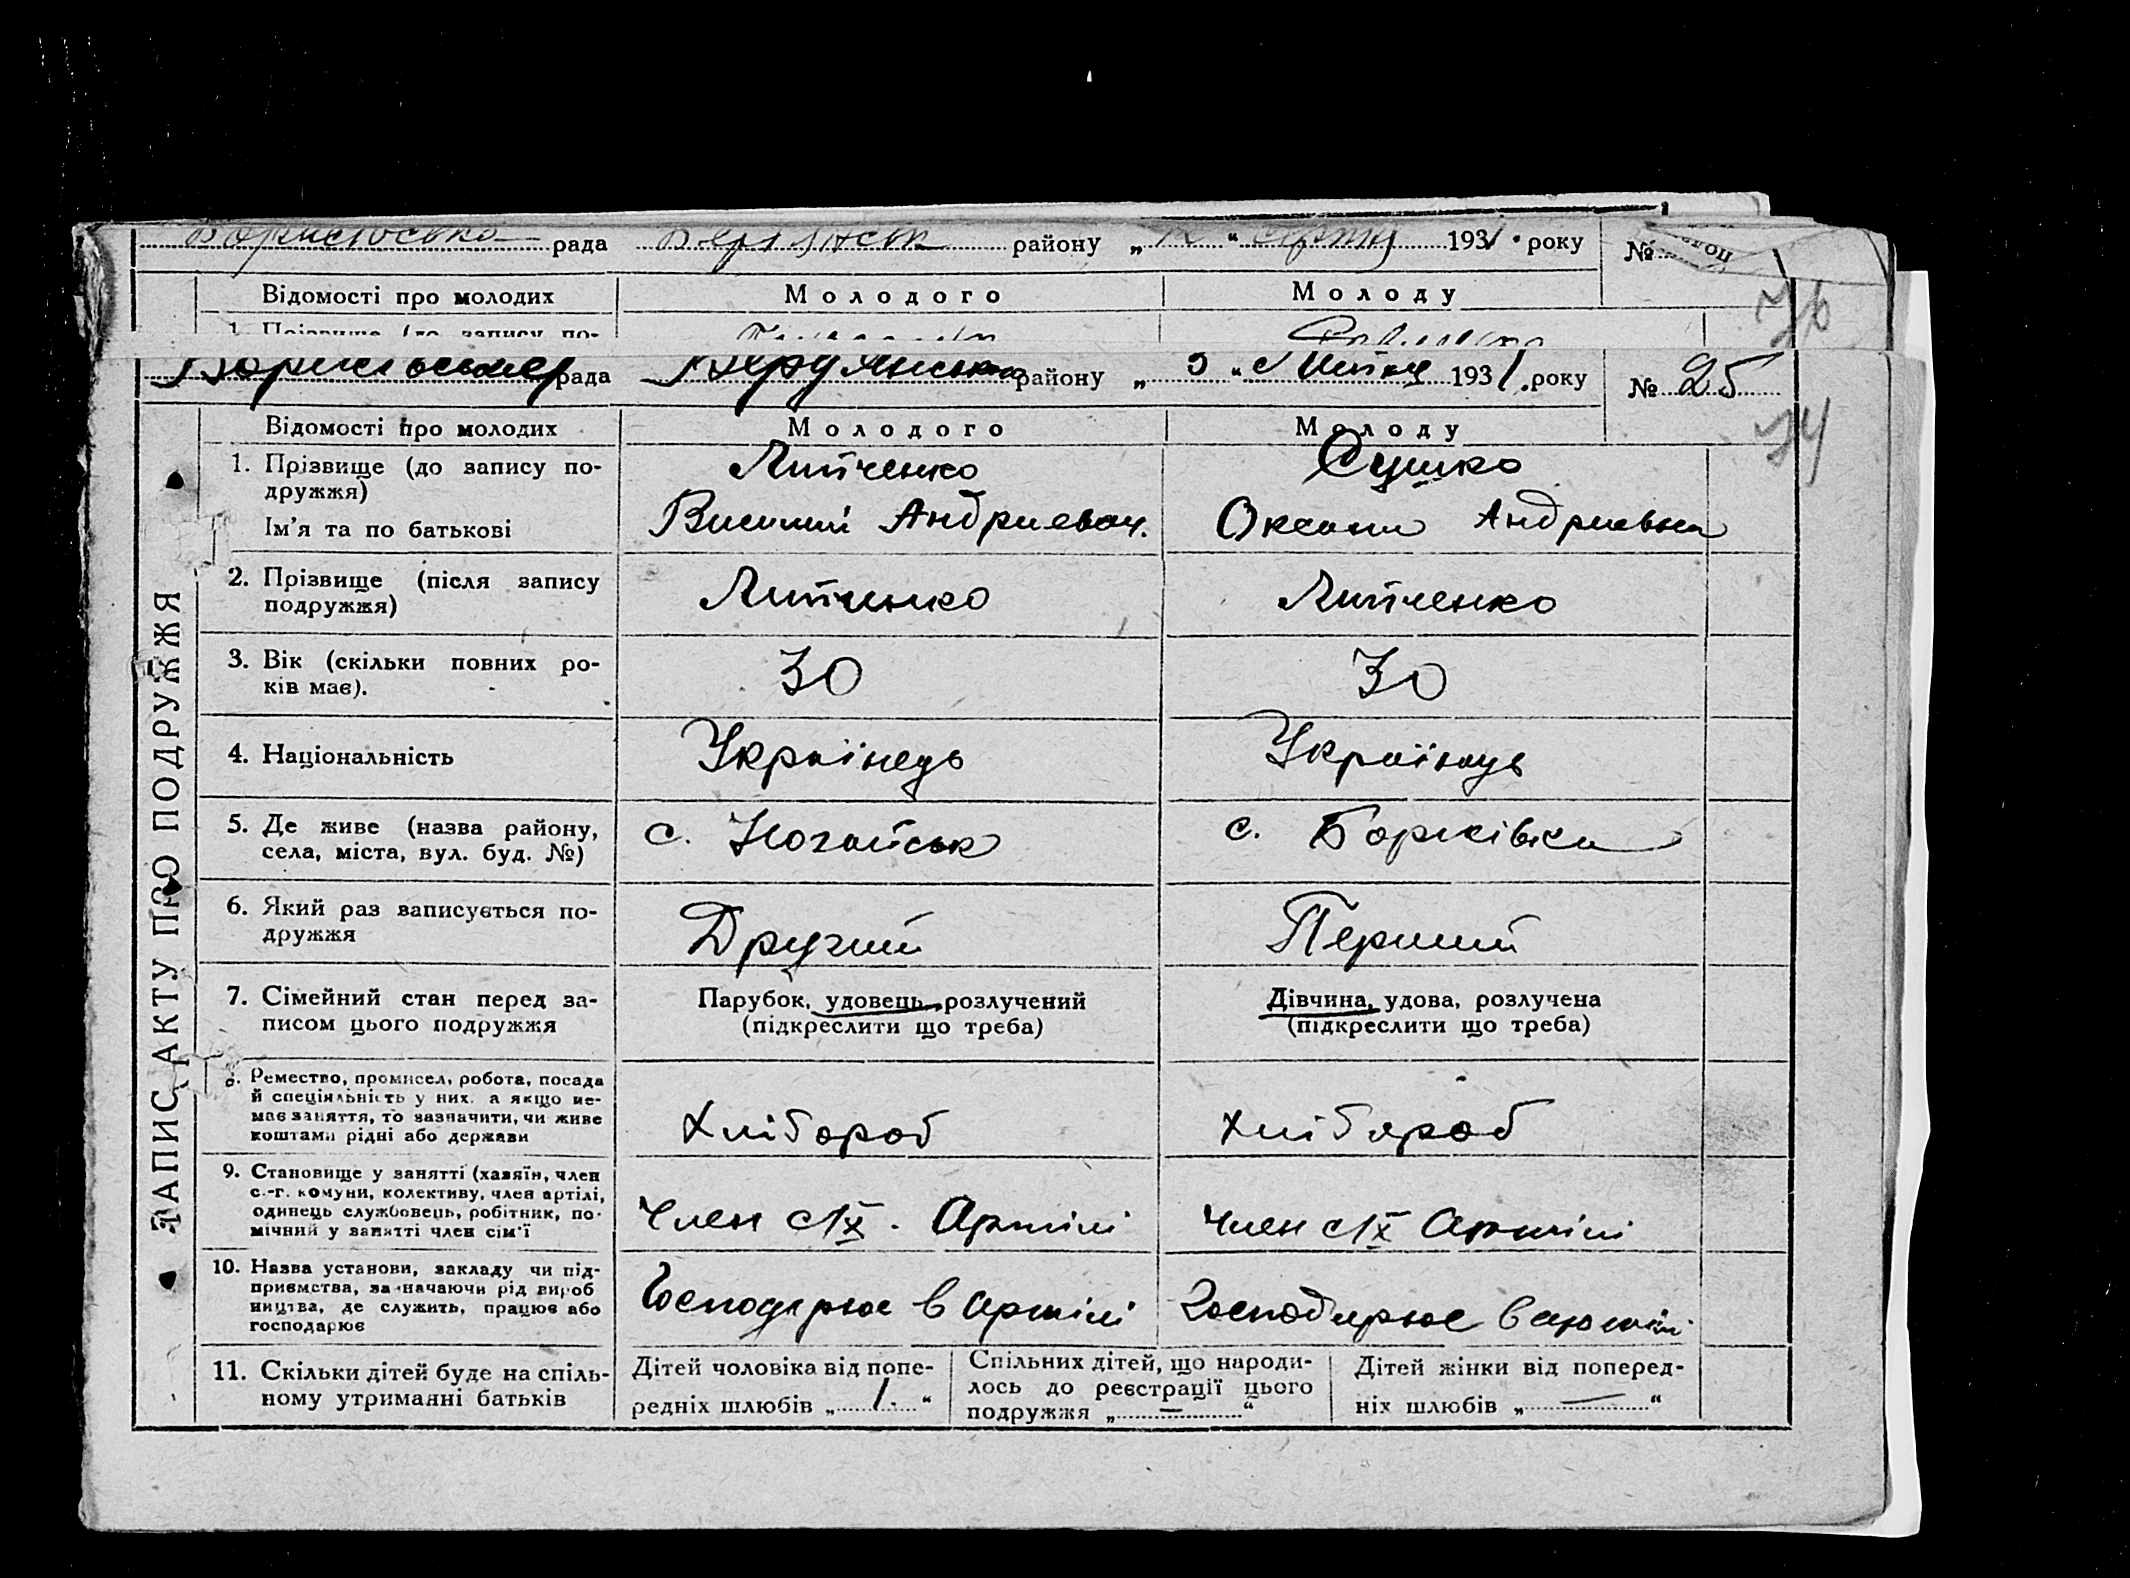 рада району „ “ 1931 року №
Відомості про молодих Молодого Молоду
рада Бердянського району „ 3 “ Липня 1931 року № 25
74
Відомості про молодих Молодого Молоду
1. Прізвище (до запису по- Липченко Сушко
дружжя)
Ім’я та по батькові Василий Андриевич. Оксана Андриевна
2. Прізвище (після запису Липченко Липченко
подружжя)
3. Вік (скільки повних ро- 30 30
ків має).
4. Національність Українець Українць
5. Де живе (назва району, с. Ногайськ с.
села, міста, вул. буд. №)
6. Який раз записується по- Другий Перший
дружжя
7. Сімейний стан перед за- Парубок, удовець, розлучений Дівчина, удова, розлучена
писом цього подружжя (підкреслити що треба) (підкреслити що треба)
8. Ремество, промисел, робота, посада
й спеціяльність у них, а якщо не-
має заняття, то зазначити, чи живе Хлібороб Хлібороб
коштами рідні або держави
9. Становище у занятті (хазяїн, член
с.-г. комуни, колективу, член артілі,
одинець службовець, робітник, по- Член Артілі Член Артілі
мічний у занятті член сім’ї
10. Назва установи, закладу чи під-
приємства, зазначаючи рід вироб
ництва, де служить, працює або Господарює в артілі Господарює в артілі
господарює
11. Скільки дітей буде на спіль- Дітей чоловіка від попе- Спільних дітей, що народи- Дітей жінки від поперед-
ному утриманні батьків редніх шлюбів „ 1. “ лось до реєстрації цього ніх шлюбів „ — “
подружжя „ — “
ЗАПИС АКТУ ПРО ПОДРУЖЖЯ